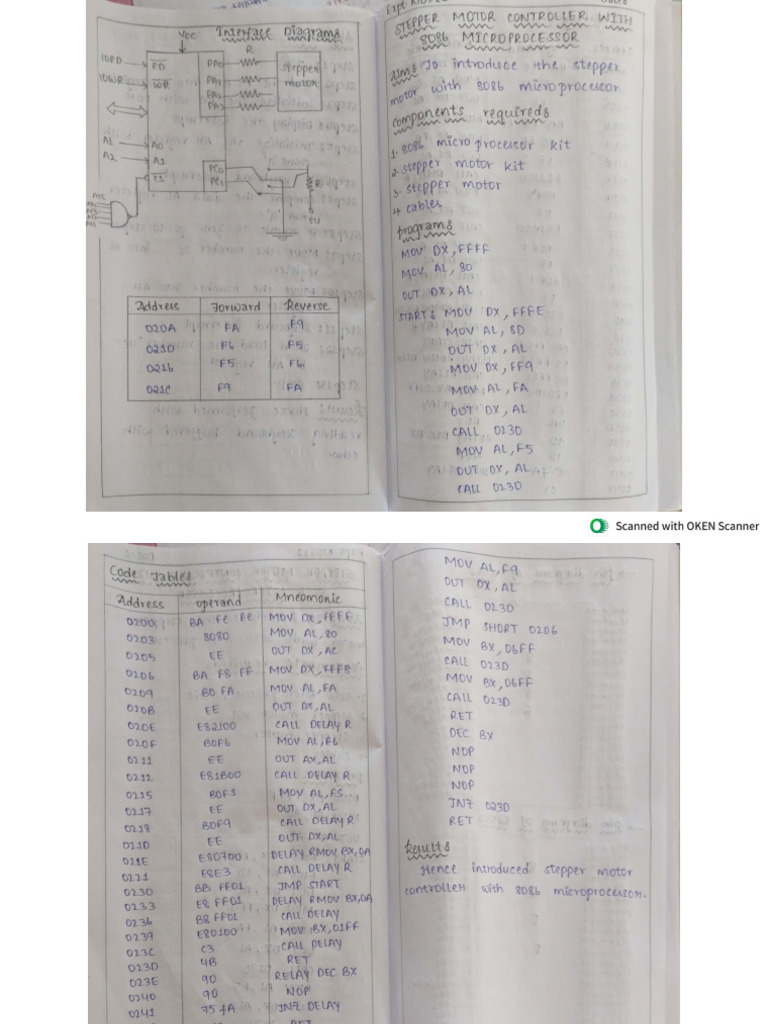 Interface Diagrams
Vcc
R
IORD
RD
PA0
stepper
motor
IOWR
WR
PA1
PA2
PA3
A1
A0
A2
A1
PC0
PC1
CS
R
5V
Address Forward Reverse
020A FA F9
0210 F6 F5
0216 F5 F6
021C F9 FA
STEPPER MOTOR CONTROLLER WITH
8086 MICROPROCESSOR
Aim: To introduce the stepper
motor with 8086 microprocessor
Components required:
1. 8086 micro processor kit
2. stepper motor kit
3. stepper motor
4. cables
Program:
MOV DX, FFFF
MOV AL, 80
OUT DX, AL
START: MOV DX, FFFE
MOV AL, 8D
OUT DX, AL
MOV DX, FF9
MOV AL, FA
OUT DX, AL
CALL 023D
MOV AL, F5
OUT DX, AL
CALL 023D
Scanned with OKEN Scanner
Code Table:
Address operand Mneomonic
0200 BA FE FE MOV DX, FFFF
0203 8080 MOV AL, 80
0205 EE OUT DX, AC
0206 BA F8 FF MOV DX, FFF8
0209 B0 FA MOV AL, FA
020B EE OUT DX, AL
020E E82100 CALL DELAY R
020F B0F6 MOV AL, F6
0211 EE OUT AX, AL
0212 E81B00 CALL DELAY R
0215 B0F1 MOV AL, F5
0217 EE OUT DX, AL
0218 B0F9 CALL DELAY R
021D EE OUT DX, AL
021E E80700 DELAY RMOV BX, 0A
0221 E8E3 CALL DELAY R
0230 BB FF01 JMP START
0233 E8 FF01 DELAY RMOV BX, 0A
0236 B8 FF01 CALL DELAY
0239 E80100 MOV BX, 01FF
023C C3 CALL DELAY
023D 4B RET
023E 90 RELAY DEC BX
0240 90 NOP
0241 75 FA JNZ DELAY
RET
MOV AL, F9
OUT DX, AL
CALL 023D
JMP SHORT 0206
MOV BX, 06FF
CALL 023D
MOV BX, 06FF
CALL 023D
RET
DEC BX
NOP
NOP
NOP
JNZ 023D
RET
Result:
Hence introduced stepper motor
controller with 8086 microprocessor.